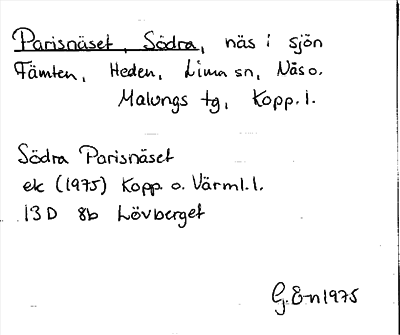 Parisnäset, Södra, näs i sjön
Fämten, Heden, Lima sn, Näs o.
Malungs tg, Kopp. l.
Södra Parisnäset
ek (1975) Kopp o. Värml. l.
13D 8b Lövberget
G. E-n 1975